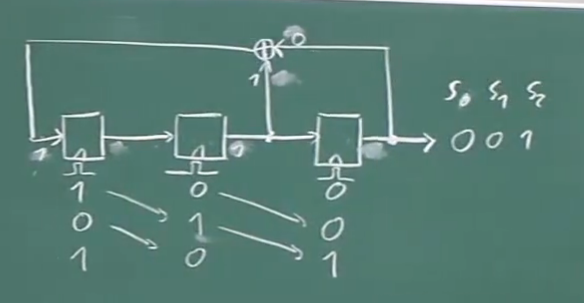 0
1
S₀ S₁ S₂
1 1
0 0 1
1 0 0
0 1 0
1 0 1